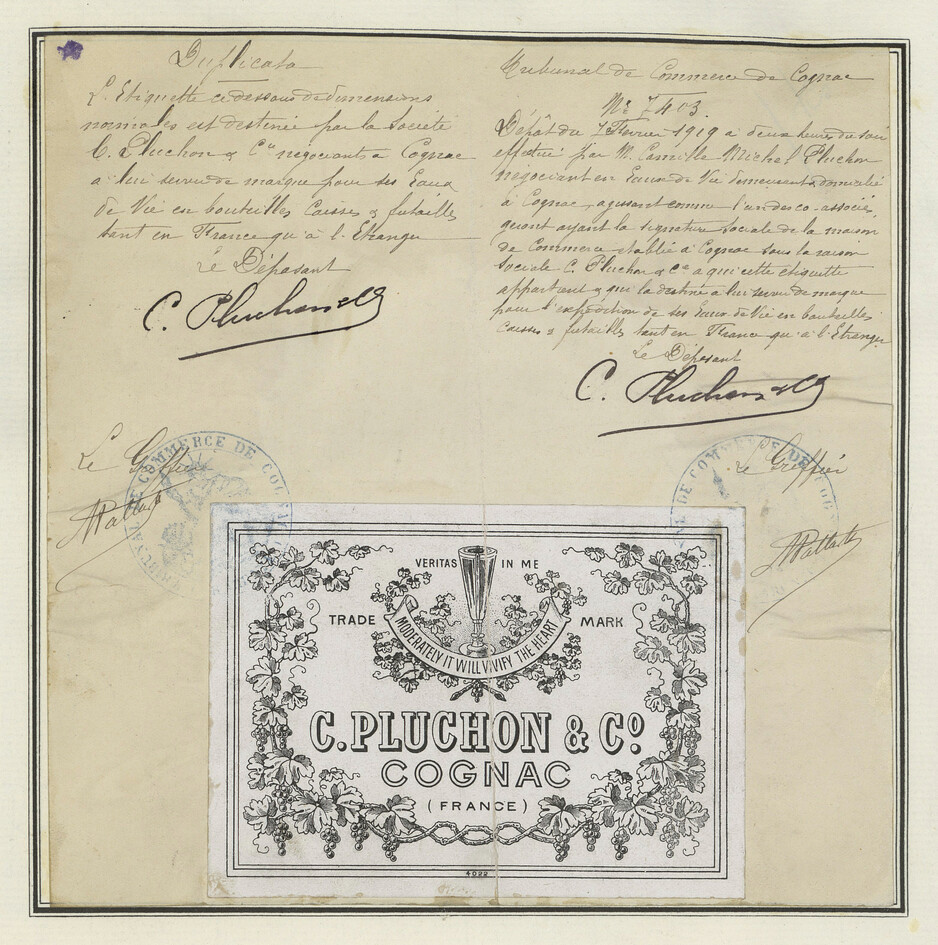 Duplicata
L'Etiquette ci dessous de dimensions
normales est destinée par la Société
C. Pluchon & Cie négociants a Cognac
a lui servir de marque pour ses Eaux
de Vie en bouteilles Caisses & futailles
tant en France qu'à l'Etranger
Le Déposant
C. Pluchon & Co
Le Greffier
Tribunal de Commerce de Cognac
No 7403.
Dépôt du 7 Février 1919 a deux heures du soir
effectué par M. Camille Michel Pluchon
négociant en Eaux de Vie demeurant & domicilié
à Cognac, agissant comme l'un des co-associés,
gérant ayant la signature sociale de la maison
de Commerce établie à Cognac sous la raison
sociale C. Pluchon & Cie a qui cette étiquette
appartient & qui la destine a lui servir de marque
pour l'expédition de ses Eaux de Vie en bouteilles
caisses & futailles tant en France qu'à l'Etranger
Le Déposant
C. Pluchon & Co
Le Greffier
COMMERCE DE COG
DE COM
VERITAS IN ME
TRADE MARK
MODERATELY IT WILL VIVIFY THE HEART
C. PLUCHON & Co.
COGNAC
(FRANCE)
4022